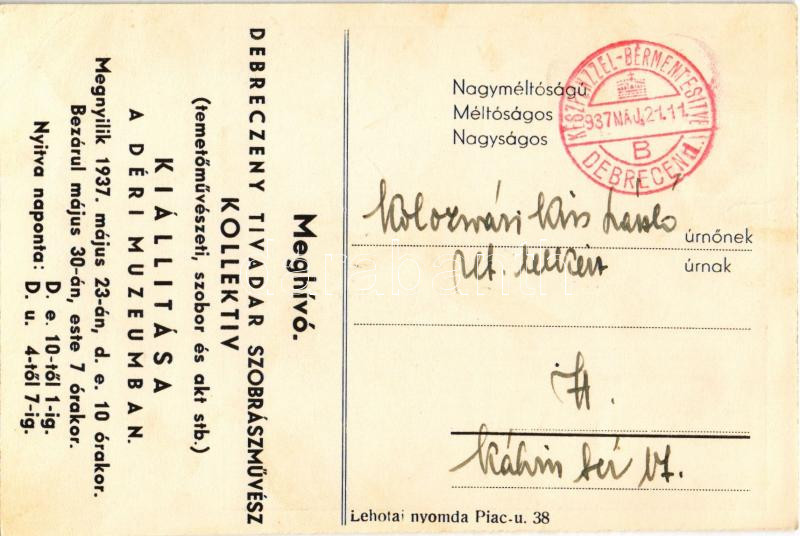 Meghívó.
DEBRECZENY TIVADAR SZOBRÁSZMŰVÉSZ
KOLLEKTIV
(temetőművészeti, szobor és akt stb.)
KIÁLLITÁSA
A DÉRI MUZEUMBAN.
Megnyilik 1937. május 23-án, d. e. 10 órakor.
Bezárul május 30-án, este 7 órakor.
Nyitva naponta: D. e. 10-től 1-ig.
D. u. 4-től 7-ig.
Nagyméltóságú
Méltóságos
Nagyságos
KÉSZPÉNZZEL-BÉRMENTESITVE
937 MÁJ. 21. 11
B
DEBRECEN 1.
Kolozsvári Kiss László
úrnőnek
ref. lelkész
úrnak
H.
Kálvin tér 17.
Lehotai nyomda Piac-u. 38